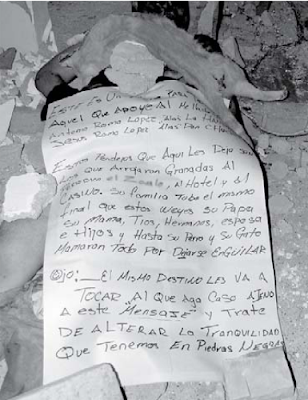 ESTE ES UN PARA
AQUEL QUE APOYE AL
ANTONIO RAMO LOPEZ, ALIAS LA
RAMO LOPEZ ALIAS DON CH
ESTOS PENDEJOS QUE AQUI LES DEJO
LOS QUE GRANADAS AL
EL AL HOTEL Y AL
CASINO. SU FAMILIA TUBO EL MISMO
FINAL QUE ESTOS WEYES SU PAPA
SU MAMA, TIOS, HERMANOS, ESPOSA
E HIJOS Y HASTA SU PERO Y SU GATO
MAMARON TODO POR DEJARSE ENGUILAR
OJO: EL MISMO DESTINO LES VA A
TOCAR AL QUE AGA CASO AJENO
A ESTE MENSAJE Y TRATE
DE ALTERAR LA TRANQUILIDAD
QUE TENEMOS EN PIEDRAS NEGRAS